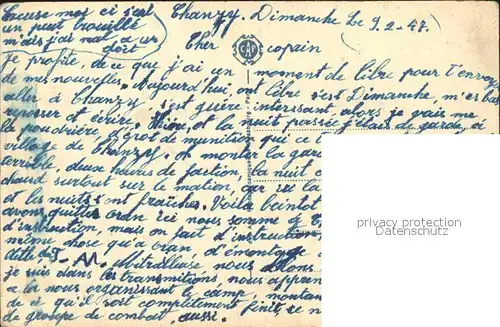 Excuse moi si c'est
un peut brouillé
mais j'ai mal a un
doit
Chanzy. Dimanche Le 9.2.47.
Cher copain
CAP
Je profile, de ce que j'ai un moment de libre pour t'envoy
de mes nouvelles. Aujourd'hui, ont libre c'est Dimanche m'es
aller à Chanzy, c'est guère interssant, alors je vais me
reposser et écrire. Hière, et la nuit passée j'étais de garde, à
la poudrière, dépot de munition qui ce t
village de Chanzy. on monter la gard
terrible, deux heures de faction, la nuit c
chaud surtout sur le matin, car ici la
et les nuits sont fraîches. Voila beintot
avons quitter oran ici nous somme a C
d'instruction, mais on fait d'instruction
même chose qu'a oran. d'émontage
Mitrailleuse nous
je suis dans les transmitions, nous appren
a la nous organissont le camp, montan
de ce qu'il soit complètement finit, ce n
de groupe de combat, aussi.
privacy protection
Datenschutz